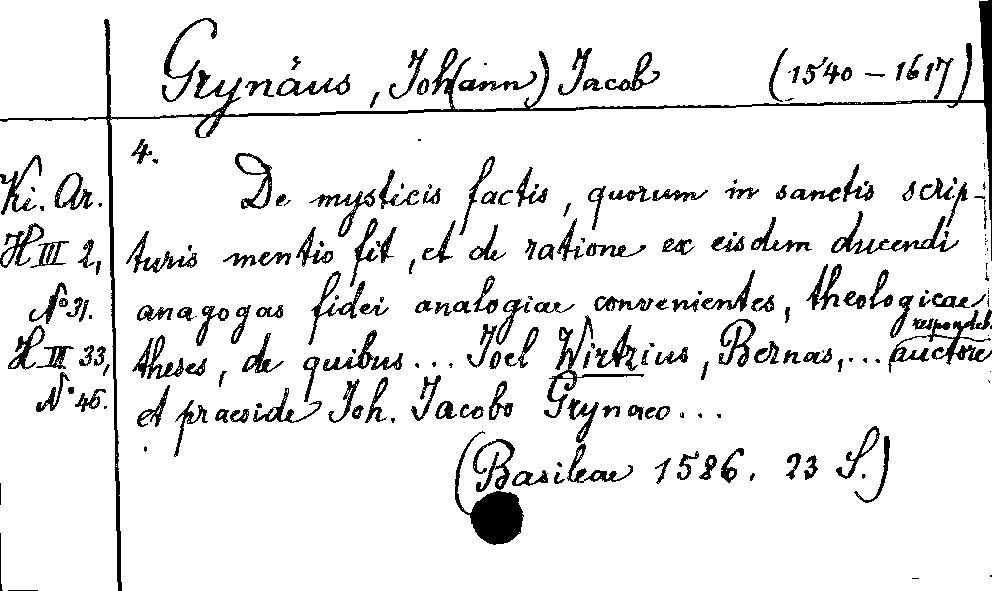 Grynäus, Joh(ann) Jacob (1540-1617)
4.
Ki. Ar.
H III 2,
No 31.
H III 33,
No 46.
De mysticis factis, quorum in sanctis scrip-
turis mentio fit, et de ratione ex eisdem ducendi
anagogas fidei analogiae convenientes, theologicae
theses, de quibus... Joel Wirtzius, Bernas,... auctore
respondeb.
et praeside Joh. Jacobo Grynaeo...
(Basileae 1586. 23 S.)